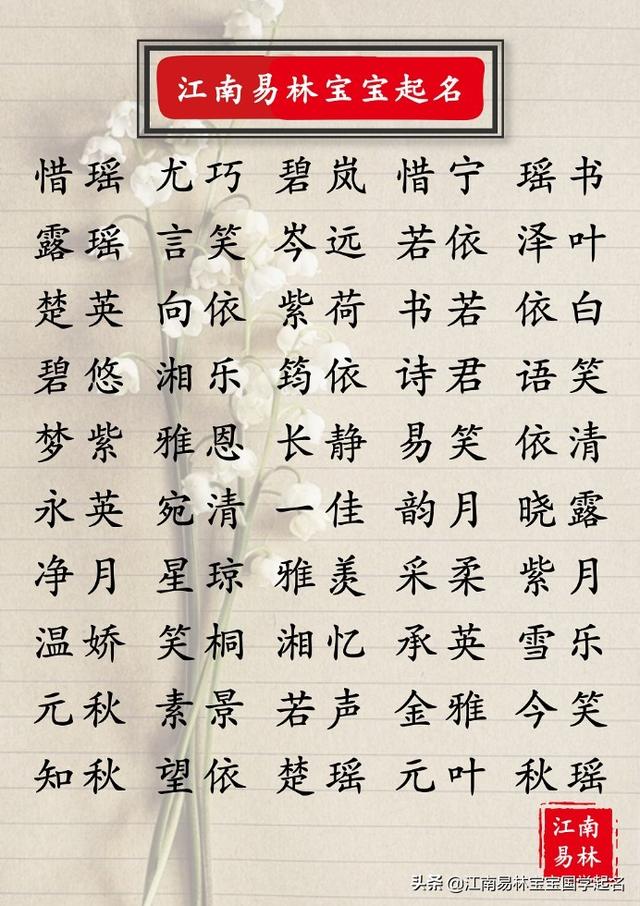 江南易林宝宝起名
惜瑶 尤巧 碧岚 惜宁 瑶书
露瑶 言笑 岑远 若依 泽叶
楚英 向依 紫荷 书若 依白
碧悠 湘乐 筠依 诗君 语笑
梦紫 雅恩 长静 易笑 依清
永英 宛清 一佳 韵月 晓露
净月 星琼 雅羡 采柔 紫月
温娇 笑桐 湘忆 承英 雪乐
元秋 素景 若声 金雅 今笑
知秋 望依 楚瑶 元叶 秋瑶
江南
易林
头条 @江南易林宝宝国学起名